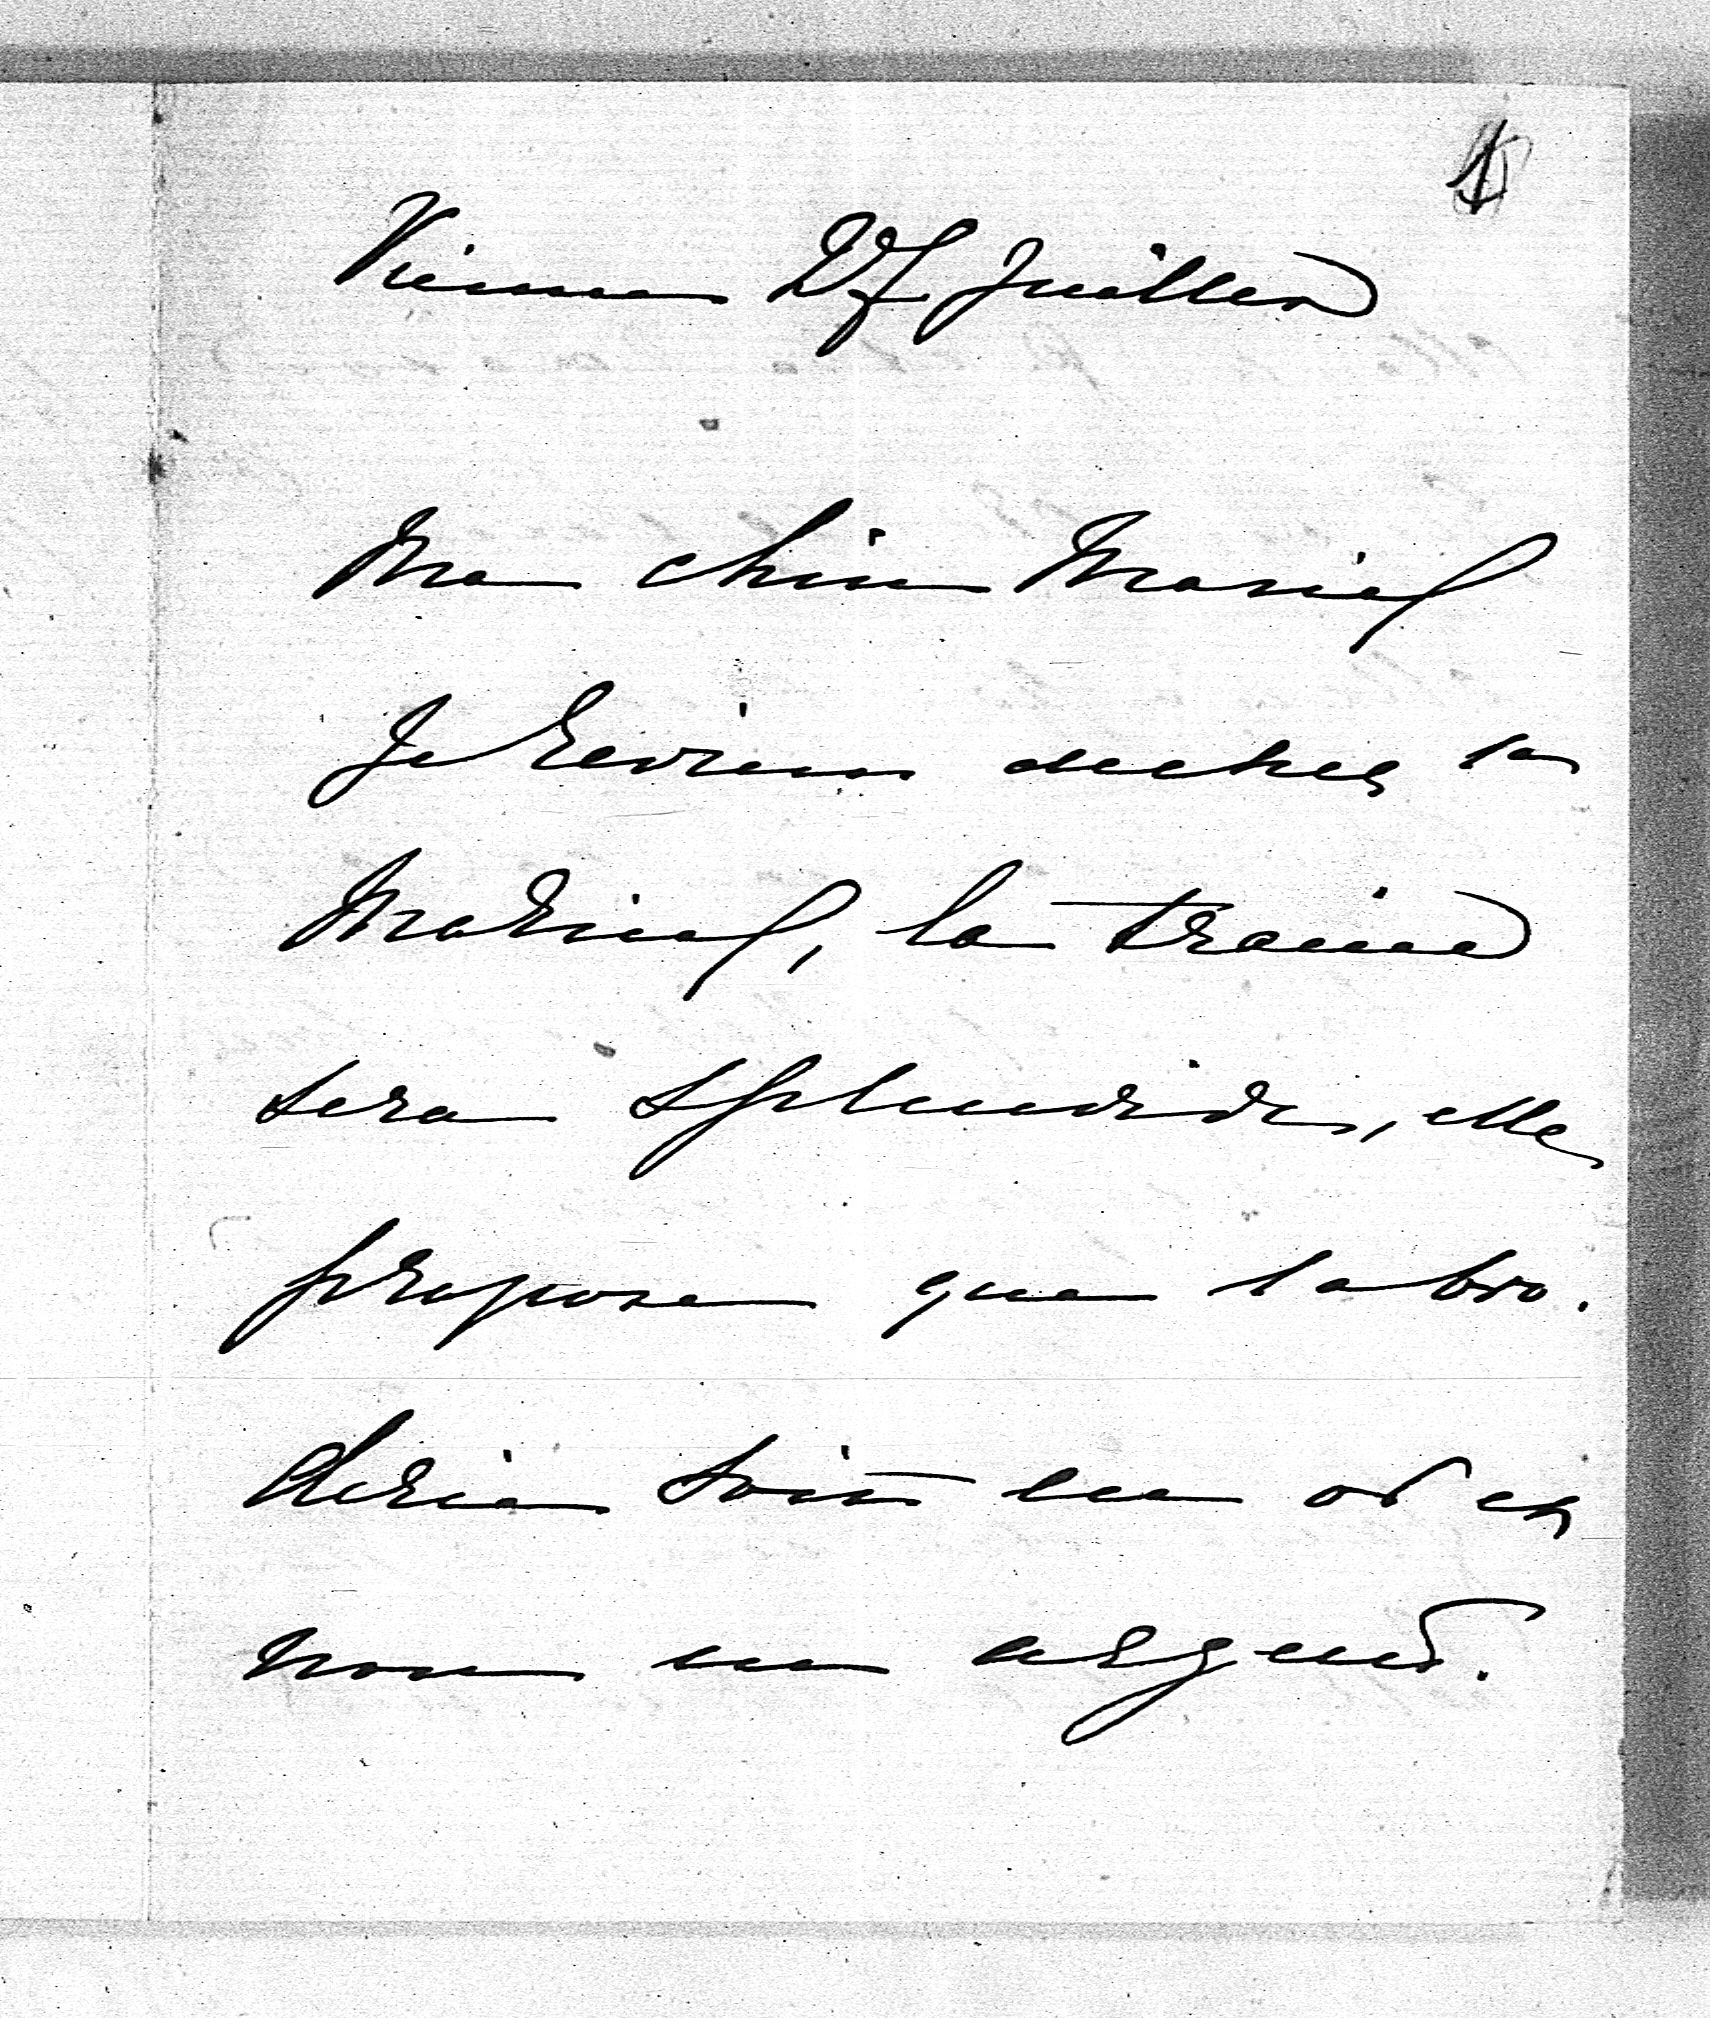 Vienne 27 Juillet
Ma chère Marie
Je reviens de chez la
Martine, la traine
sera splendide, elle
propose que la bro-
derie soit en or et
non en argent.